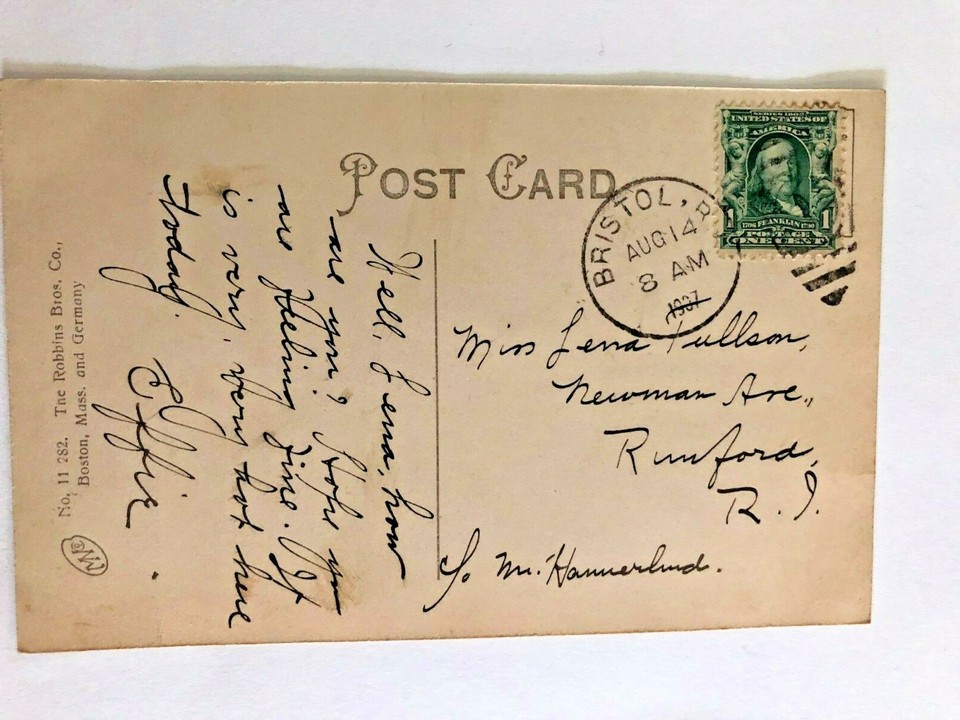 POST CARD
SERIES 1902
UNITED STATES OF
AMERICA
1 1
1706 FRANKLIN 1790
POSTAGE
ONE CENT
BRISTOL, R
AUG 14
8 AM
1907
Miss Lena Tullson,
Newman Ave.,
Rumford,
R. I.
c/o Mr. Hammerlund.
Well, Lena, how
are you? Hope you
are feeling fine. It
is very, very hot here
today.
Effie
No. 11 282. The Robbins Bros. Co.,
Boston, Mass. and Germany